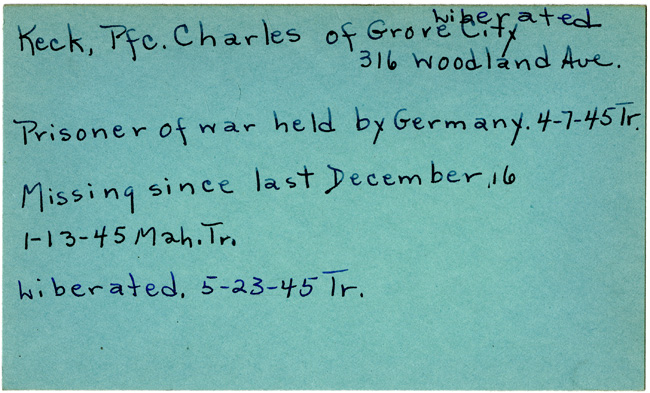 Liberated
Keck, Pfc. Charles of Grove City
316 Woodland Ave.
Prisoner of war held by Germany. 4-7-45 Tr.
Missing since last December, 16
1-13-45 Mah. Tr.
Liberated. 5-23-45 Tr.